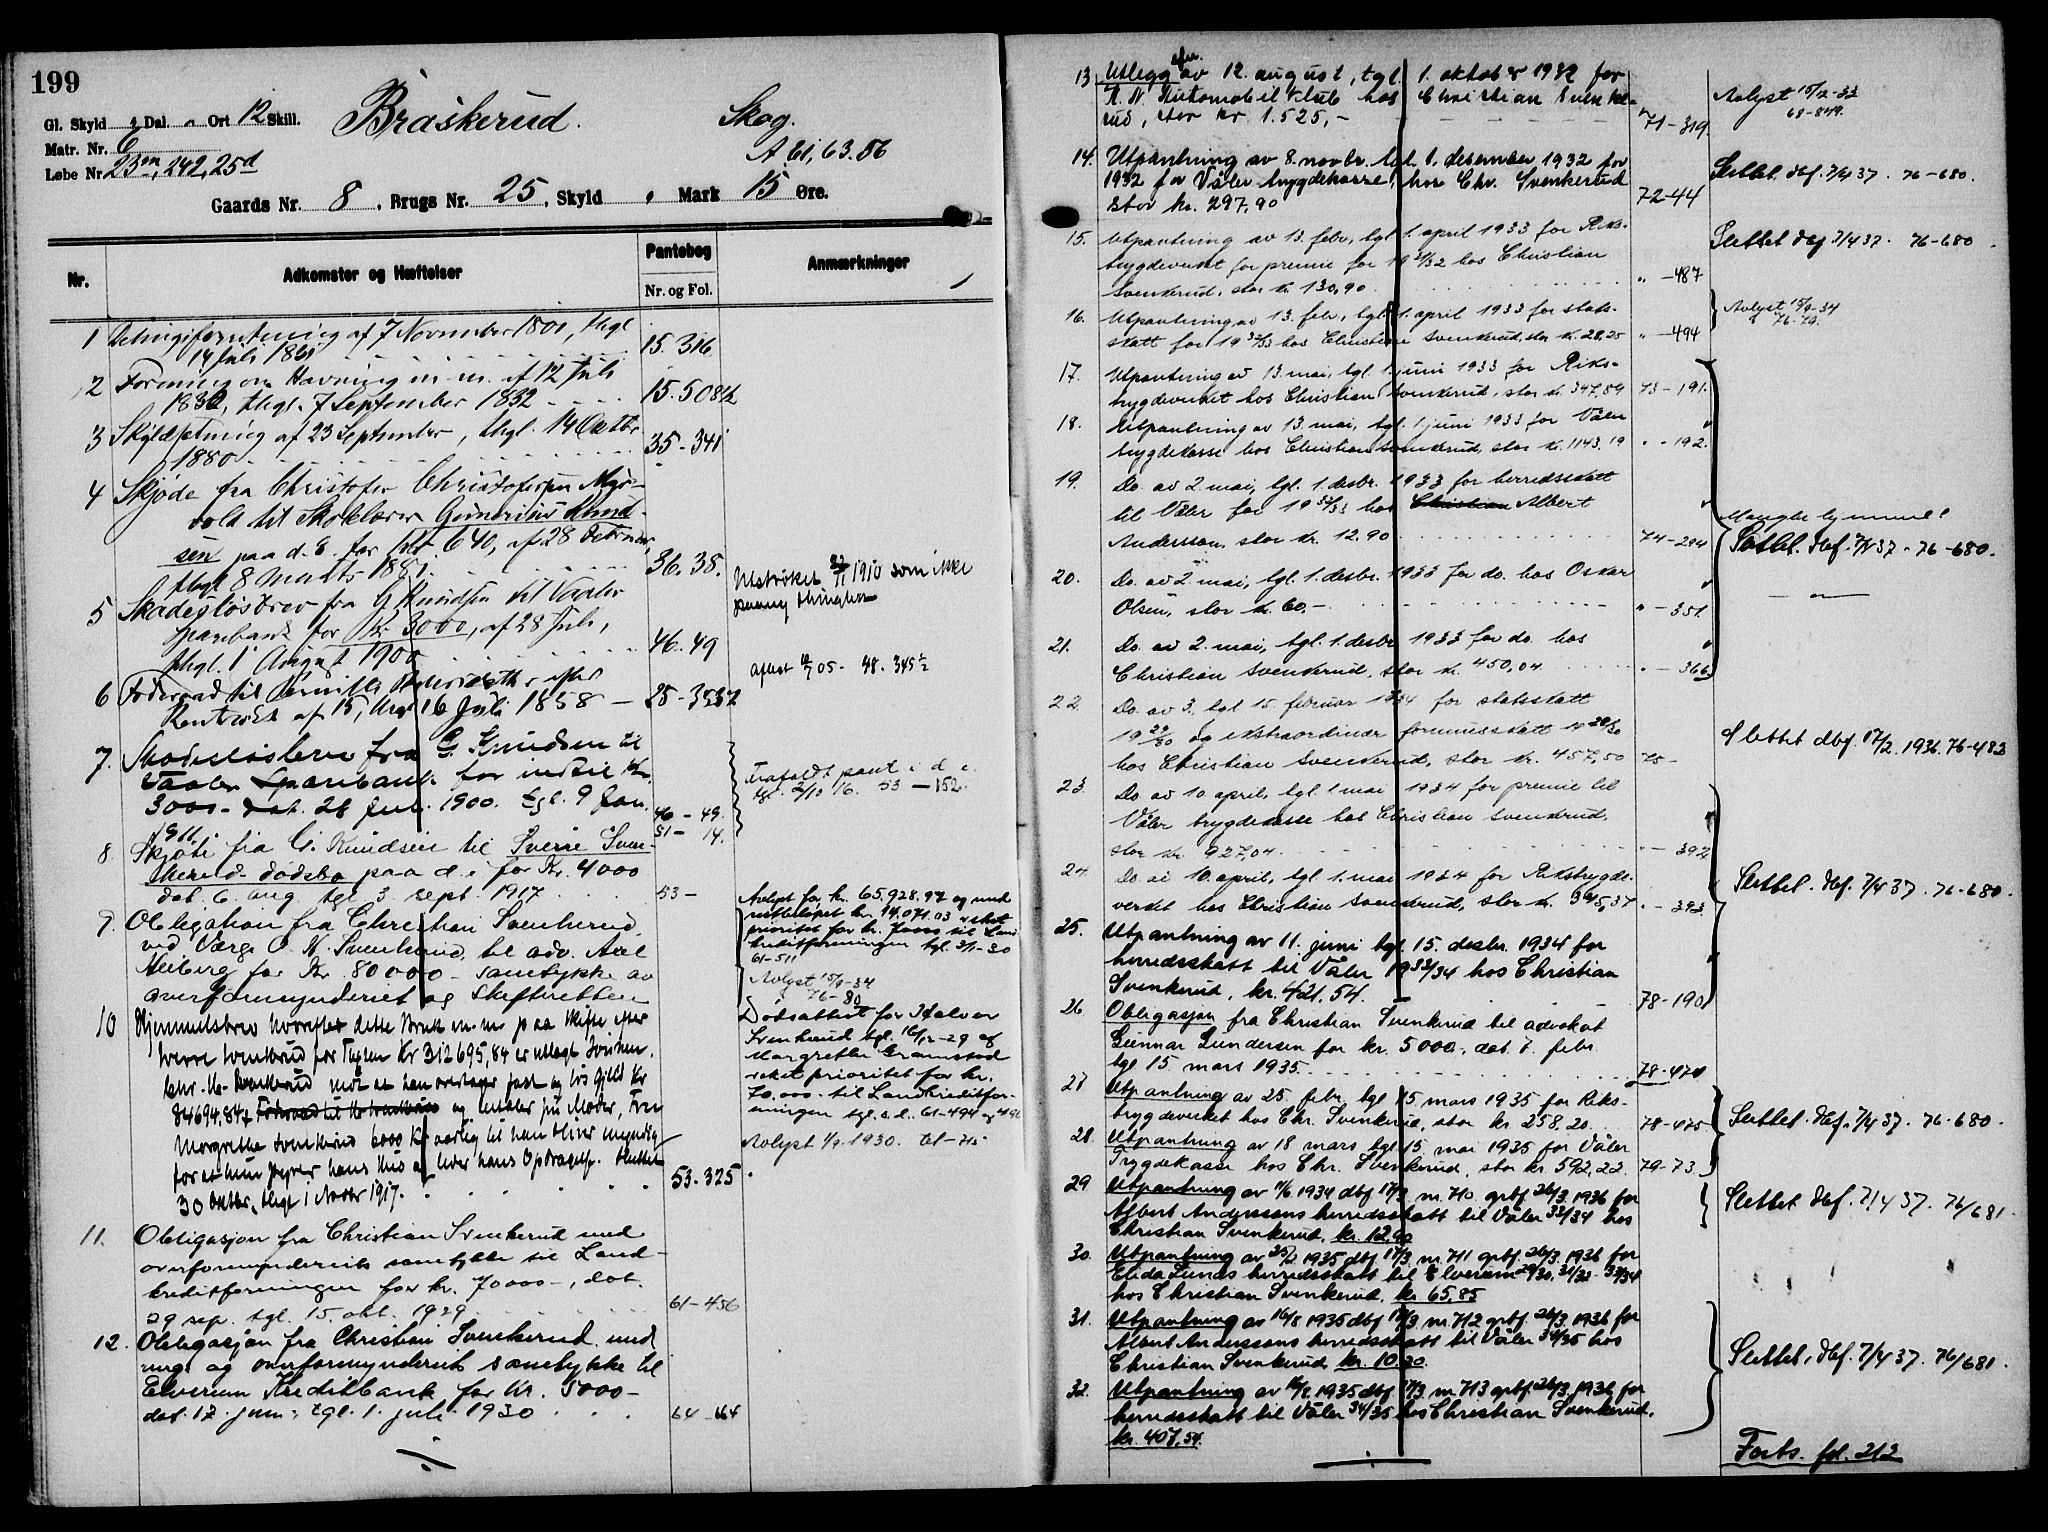 199
Gl. Skyld Dal. Ort 12 Skill.
Braskerud. Skog.
Matr. Nr. 6
A 61, 63. 56
Løbe Nr. 23m, 242, 25d
Gaards Nr. 8, Brugs Nr. 25, Skyld Mark 15 Øre.
Nr. Adkomster og Hæftelser Pantebog Anmærkninger
Nr. og Fol.
1 af 7 November 1801, thgl
14 Juli 1861 15. 316
2 Forening om Havning m.m. af 12 Juli
1832, thgl. 7 September 1832 15. 508 1/2
3 Skyldsætning af 23 September, thgl. 14 Octbr
1880 35-341
4 Skjøde fra Christofer Christofersen
til Skolelærer Gunerius Knud-
sen paa d. E. for 640, af 28 Februar,
thgl 8 Marts 1881. 36. 35.
5 Skadesløsbrev fra G Knudsen til Vaaler
Sparebank for Kr 3000, af 28 Juli,
thgl. 1 August 1900 46. 49
Udstrøket 22/11 1910 som ikke
Aflæst 12/7 05 - 48. 345 1/2
6 Føderaad til efter
af 15, thgl 16 Juli 1858 - 25-353 1/2
7. Skadesløsbrev fra G. Knudsen til
Vaaler Sparebank for indtil Kr.
3000 - dat. 28 juli 1900. tgl. 9 jan.
1911. 46-49.
51- 14.
Frafaldt pant i d. e.
tgl. 2/10 16. 53-152.
8. Skjøte fra G. Knudsen til Sverre Sven-
kerud dødsbo paa d. e. for Kr. 4000
dat. 6 aug. tgl 3. sept. 1917 53-
9. Obligation fra Christian Svenkerud
ved Verge O. N. Svenkerud, til adv. Axel
Heiberg for Kr. 80000 - samtykke av
overformynderiet og skifteretten
Avlyst for kr. 65,928.97 og med
restbeløpet kr. 14.071.03 veket
prioritet for kr. 70000 til Land
kreditforeningen tgl. 3/1-30
61-511
Avlyst 15/9-34
76-80
10 Hjemmelsbrev hvorefter dette Bruk m. m. paa skifte efter
Sverre Svenkerud for Taxten Kr 312695,84 er utlagt
Chr. H. Svenkerud mot at han overtager fast og løs Gjæld Kr
84694.84, og betaler sin Moder, Fru
Margrethe Svenkerud 6000 Kr aarlig til han bliver myndig
for at hun styrer hans Hus og leder hans Opdragelse. Skiftet
30 Oktbr, thgl 1 Novbr 1917. 53. 325
Dødsattest for Halvor
Svenkerud tgl. 16/12-29 og
Margrethe Gramstad
veket prioritet for kr.
70.000 - til Landkreditfor-
eningen tgl. s.d. 61-494 og 496
Avlyst 1/9 1930. 61-75
11. Obligasjon fra Christian Svenkerud med
overformynderiets samtykke til Land-
kreditforeningen for kr. 70000 -, dat.
29 sep. tgl. 15. okt. 1929 61-456
12. Obligasjon fra Christian Svenkerud med
verge og overformynderiets samtykke til
Elverum Kreditbank for kr. 5000 -
dat. 17. juni, tgl. 1. juli 1930 64-64
13 Utlegg efter av 12. august, tgl 1. oktober 1932 for
K. N. Automobil Klub hos Christian Svenke-
rud, stor kr. 1.525,- 71-319.
Avlyst 15/2-33
68-849.
14. Utpantning av 8. novbr. tgl. 1. desember 1932 for
1932 for Våler trygdekasse, hos Chr. Svenkerud
stor kr. 297,90 72-44
Slettet dbf. 7/4 37. 76-680.
15. Utpantning av 13. febr, tgl 1. april 1933 for Riks-
trygdeverket for premie for 1931/32 hos Christian
Svenkerud, stor kr. 130,90 " -487
Slettet dbf 7/4 37. 76-680.
16. Utpantning av 13. febr, tgl 1. april 1933 for stats-
skatt for 1932/33 hos Christian Svenkerud, stor kr. 28,25 " -494
Avlyst 15/9-34
76-79.
17. Utpantning av 13. mai, tgl. 1. juni 1933 for Riks-
trygdeverket hos Christian Svenkerud, stor kr. 347,89 73-191.
18. Utpantning av 13. mai, tgl. 1. juni 1933 for Våler
trygdekasse hos Christian Svenkerud, stor kr. 1143.19 " -192.
19. Do. av 2. mai, tgl. 1. desbr. 1933 for herredsskatt
til Våler for 1932/33 hos Christian Albert
Andersson, stor kr. 12.90 74-294
Mangler hjemmel!
Slettet. dbf. 7/4 37 - 76-680.
20. Do. av 2. mai, tgl. 1. desbr. 1933 for do. hos Oskar
Olsen, stor kr. 60.- " -351.
21. Do. av 2. mai, tgl. 1. desbr 1933 for do. hos
Christian Svenkerud, stor kr. 450,04 " -366
22. Do. av 3, tgl 15. februar 1934 for statsskatt
1929/30 og ekstraordinær formuesskatt 1929/30
hos Christian Svenkerud, stor kr. 457,50 75-
Slettet dbf. 17/2. 1936. 76-483
23. Do av 10. april, tgl 1. mai 1934 for premie til
Våler trygdekasse hos Christian Svenkerud,
stor kr. 927,04 " -392
24. Do av 10. april, tgl. 1. mai 1934 for Rikstrygde-
verket hos Christian Svenkerud, stor kr. 345,37 " -393
Slettet. dbf. 7/4 37. 76-680.
25. Utpantning av 11. juni tgl. 15. desbr. 1934 for
herredsskatt til Våler 1933/34 hos Christian
Svenkerud, kr. 421.54. 78-190
26 Obligasjon fra Christian Svenkerud til advokat
Gunnar Gundersen for kr. 5000.-, dat. 7. febr.
tgl 15 mars 1935. 78-470
27 Utpantning av 25. febr. tgl 15 mars 1935 for Riks-
trygdeverket hos Chr. Svenkerud, stor kr 258,20. 78-475
Slettet. dbf. 7/4 37. 76-680.
28. Utpantning av 18 mars tgl. 15. mai 1935 for Våler
Trygdekasse hos Chr. Svenkerud, stor kr. 592,22. 79-73
29 Utpantning av 11/6 1934 dbf 17/3 nr. 710. grbf 26/3. 1936 for
Albert Anderssons herredsskatt til Våler 33/34 hos
Christian Svenkerud, kr. 12,90
Slettet dbf. 7/4 37. 76/681.
30. Utpantning av 25/2 1935 dbf 17/3 nr. 711 grbf. 26/3. 1936 for
Elida Lunds herredsskatt til Elverum 29/30, 31/32 - 33/34
hos Christian Svenkerud, kr 65,85
31. Utpantning av 16/8 1935 dbf 17/3 nr. 712 grbf. 26/3 1936 for
Albert Anderssons herredsskatt til Våler 34/35 hos
Christian Svenkerud kr. 10.20.
Slettet. dbf. 7/4 37. 76/681.
32. Utpantning av 16/8. 1935 dbf 17/3 nr 713 grbf 26/3. 1936 for
herredsskatt til Våler 34/35 hos Christian Svenkerud,
kr. 407,54.
Forts. fol. 212